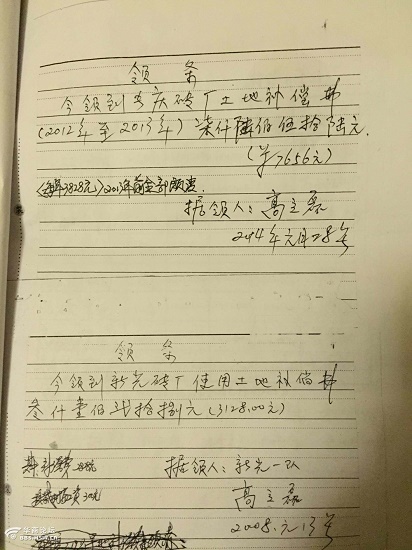 领条
今领到步庆砖厂土地补偿费
(2012年至2013年)柒仟陆佰伍拾陆元.
(¥7656元)
(每年3828元)2013年前全部领清.
据领人:高立磊
2014年元月28号
领条
今领到新光砖厂使用土地补偿费
叁仟壹佰贰拾捌元(3128.00元)
据领人:新光一队
高立磊
2008.元.13号
华商论坛